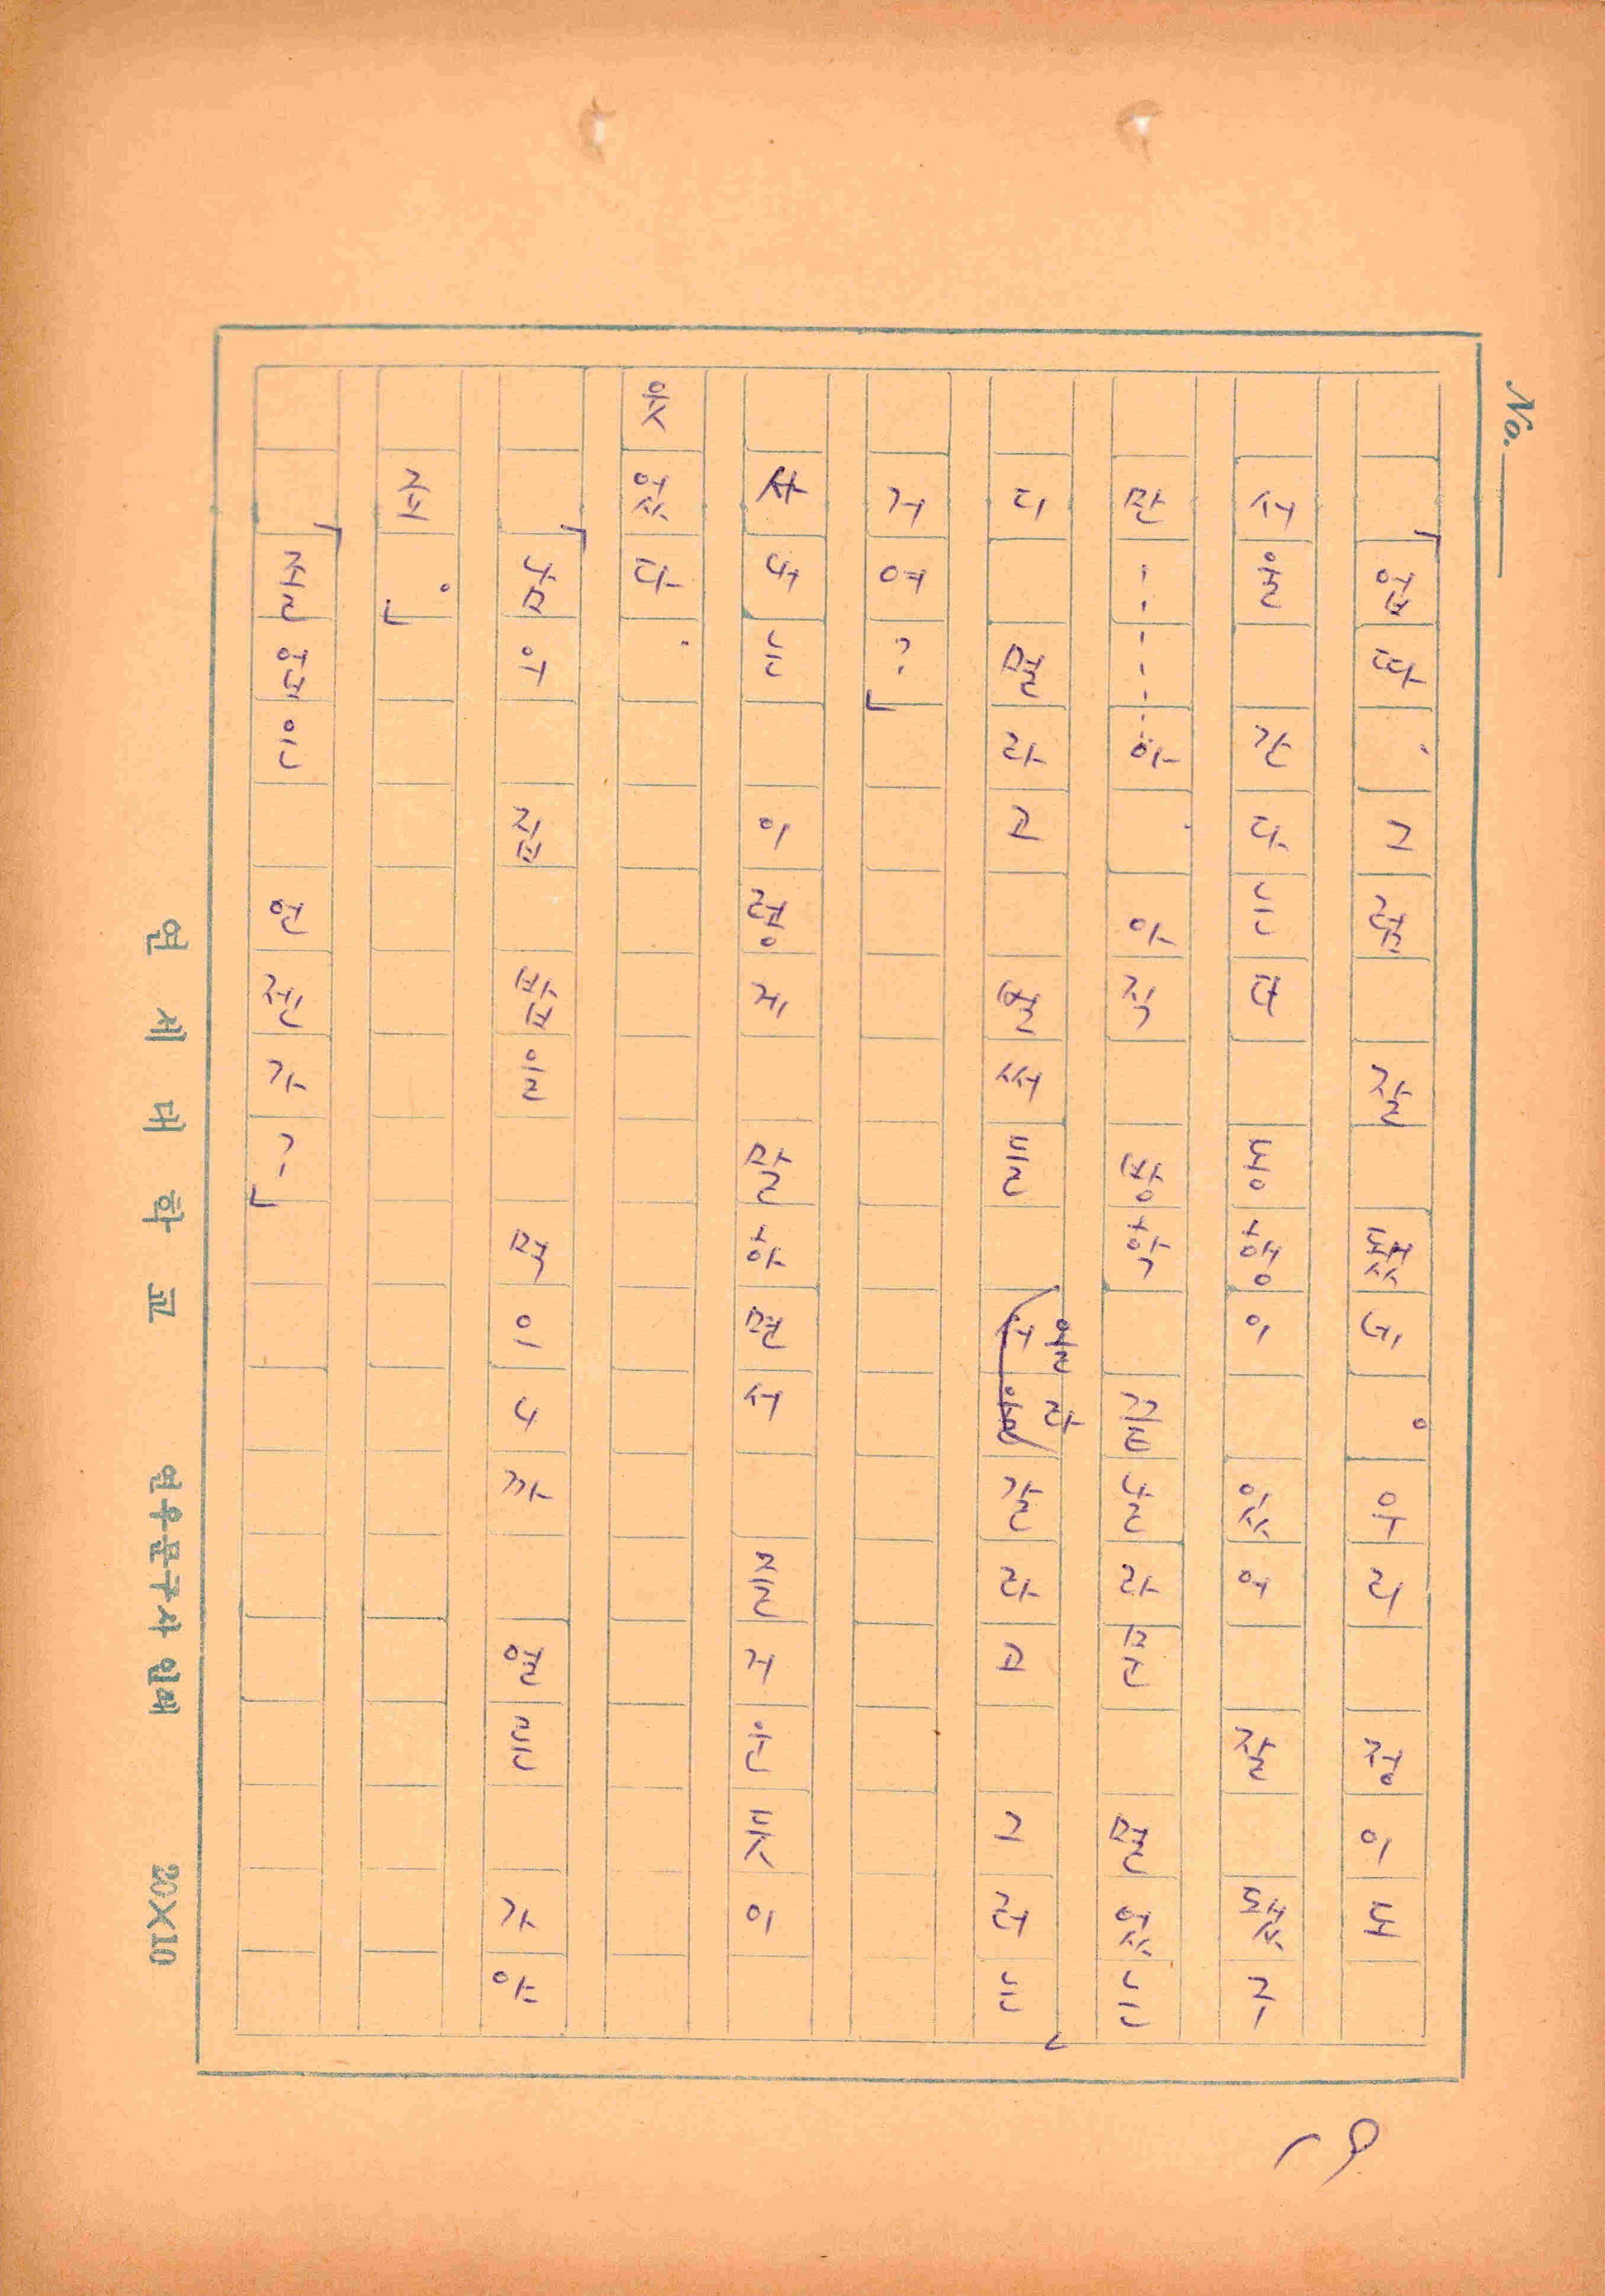 다. 그럼 잘 됐네. 우리 정이도
서울 간다는데 동행이 있어 잘 됐구
만……하. 아직 방학 끝날라믄 멀었는
디 멀라고 벌써 올라갈라고 그러는
거여?」
사내는 이렇게 말하면서 즐거운 빛이
웃었다.
「남우 집 밥일 먹이니까 열른 가야
지.」
「졸업은 언젠가?」
No.
19
연세대학교 연우문구사 인쇄 20X10